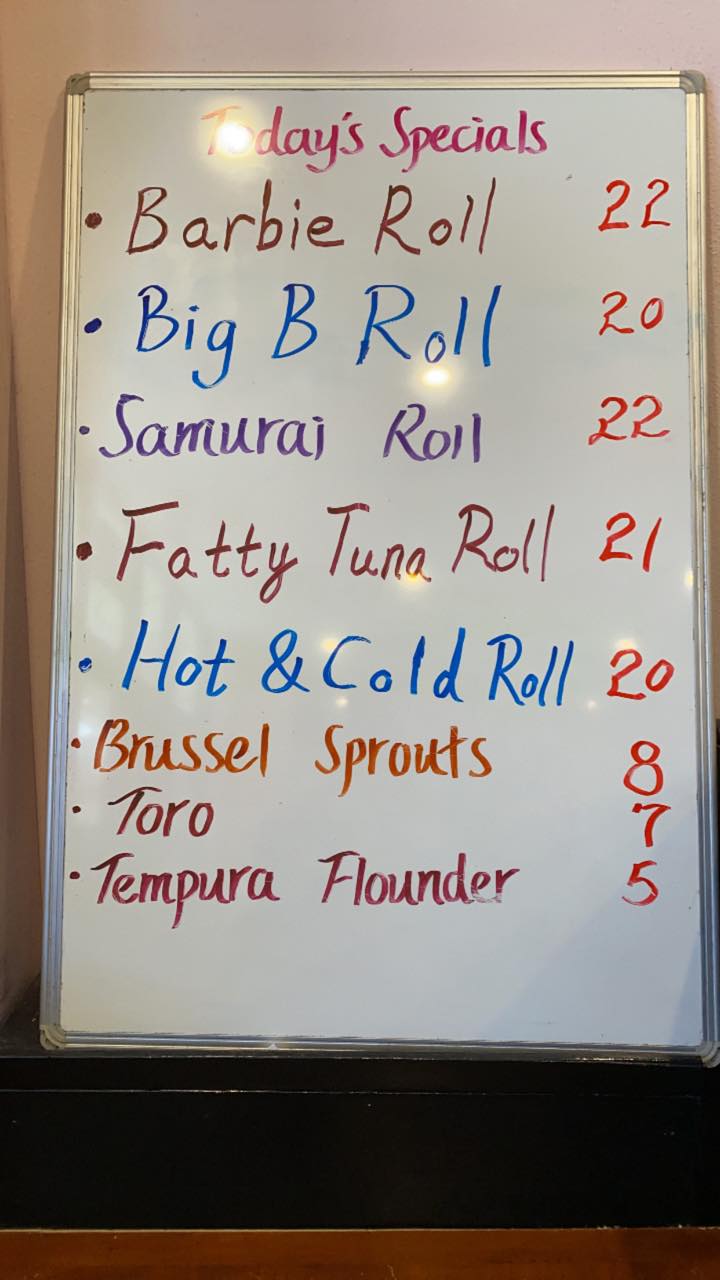 Today's Specials
• Barbie Roll 22
• Big B Roll 20
• Samurai Roll 22
• Fatty Tuna Roll 21
• Hot & Cold Roll 20
• Brussel Sprouts 8
• Toro 7
• Tempura Flounder 5